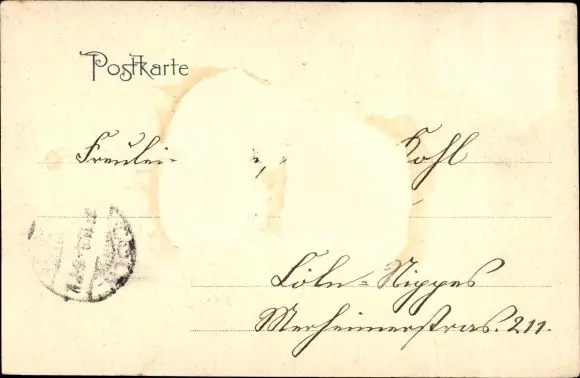 Postkarte
Freulei- Kohl
Cöln-Nippes
Merheimerstras. 211.